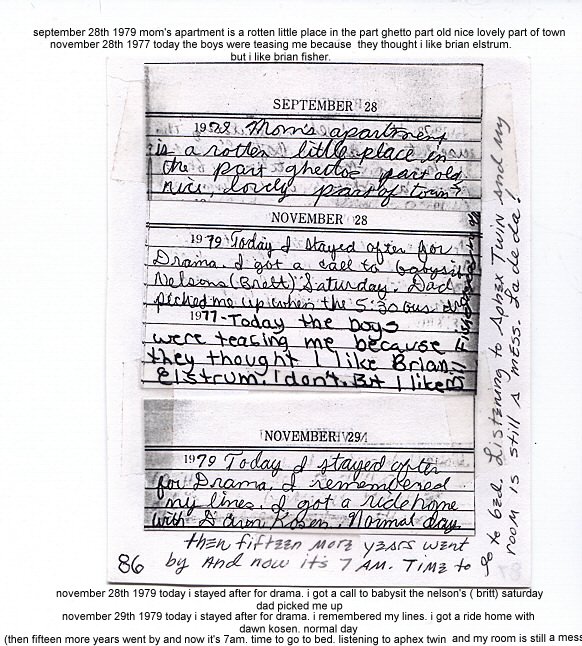 september 28th 1979 mom's apartment is a rotten little place in the part ghetto part old nice lovely part of town
november 28th 1977 today the boys were teasing me because they thought i like brian elstrum.
but i like brian fisher.
SEPTEMBER 28
Mom's apartment
is a rotten little place in
the part ghetto part old
nice, lovely part of town
NOVEMBER 28
1979 Today I stayed after for
Drama. I got a call to babysit
Nelsons (Brett) Saturday. Dad
picked me up when the 5:30 bus
1977-Today the boys
were teasing me because
they thought I like Brian
Elstrum. I don't. But I like
NOVEMBER 29
1979 Today I stayed after
for Drama. I remembered
my lines. I got a ride home
with Dawn Kosen. Normal day.
then fifteen more years went
by And now it's 7 AM. TIME to
go to bed. Listening to Aphex Twin and my
room is still a mess. La de da!
86
november 28th 1979 today i stayed after for drama. i got a call to babysit the nelson's ( britt) saturday
dad picked me up
november 29th 1979 today i stayed after for drama. i remembered my lines. i got a ride home with
dawn kosen. normal day
(then fifteen more years went by and now it's 7am. time to go to bed. listening to aphex twin and my room is still a mess